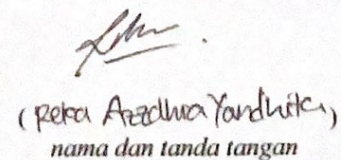 (Reka Azzdhra Yandhika)
nama dan tanda tangan